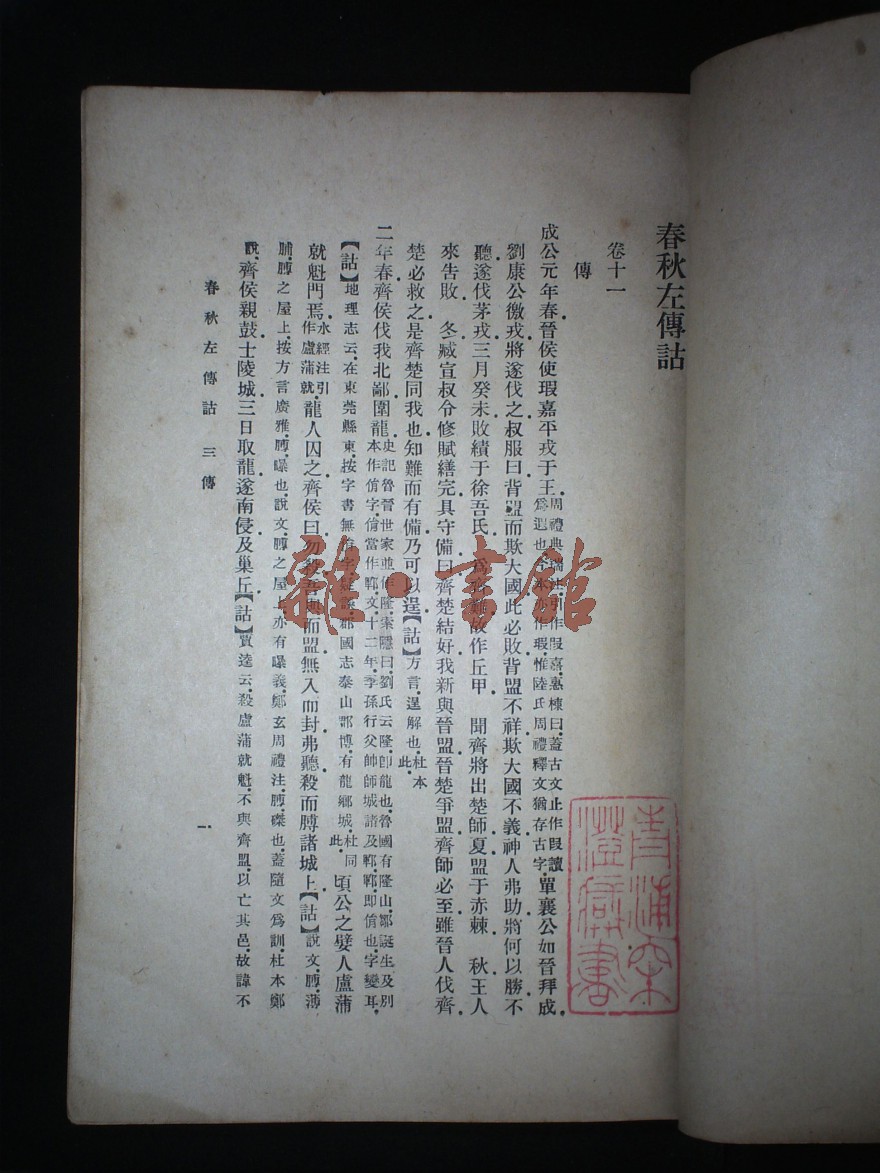 春秋左傳詁
卷十一
傳
成公元年春晉侯使瑕嘉平戎于王.周禮典瑞注引作叚嘉.惠棟曰.蓋古文止作叚.讀爲遐也.今本亦作瑕.惟陸氏周禮釋文猶存古字.單襄公如晉拜成.
劉康公徼戎將遂伐之叔服曰背盟而欺大國此必敗背盟不祥欺大國不義神人弗助將何以勝不
聽.遂伐茅戎.三月癸未敗績于徐吾氏.爲齊難故作丘甲 聞齊將出楚師.夏盟于赤棘 秋王人
來告敗 冬.臧宣叔令修賦繕完.具守備.曰齊楚結好.我新與晉盟.晉楚爭盟.齊師必至.雖晉人伐齊.
楚必救之.是齊楚同我也.知難而有備.乃可以逞.【詁】方言.逞.解也.杜本此.
二年春齊侯伐我北鄙.圍龍.史記魯晉世家並作隆.索隱曰.劉氏云.隆.卽龍也.魯國有隆山.鄒誕生及別本作俏字.俏當作鄆.文十二年.季孫行父帥師城諸及鄆.鄆卽俏也.字變耳.
【詁】地理志云.在東莞縣東.按字書無俏字.疑誤.郡國志泰山郡博.有龍鄉城.杜同此.頃公之嬖人盧蒲
就魁門焉.水經注引作盧蒲就.龍人囚之.齊侯曰.勿殺.吾與而盟.無入而封.弗聽.殺而膊諸城上.【詁】說文.膊.薄
脯.膊之屋上.按方言廣雅.膊.曝也.說文.膊之屋上.亦有曝義.鄭玄周禮注.膊.磔也.蓋隨文爲訓.杜本鄭
說.齊侯親鼓.士陵城.三日取龍.遂南侵及巢丘.【詁】賈逵云.殺盧蒲就魁.不與齊盟.以亡其邑.故諱不
春秋左傳詁 三傳
一
雜·書館